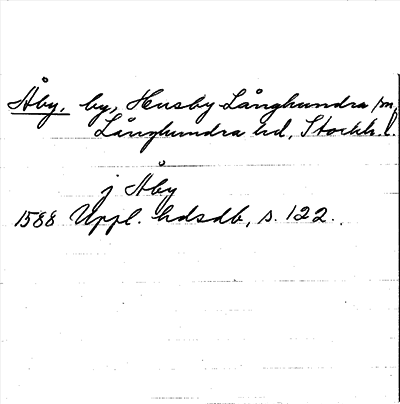 Åby, by, Husby Långhundra sn,
Långhundra hd, Stockh. l.
j Åby
1588 Uppl. hdsdb, s. 122.